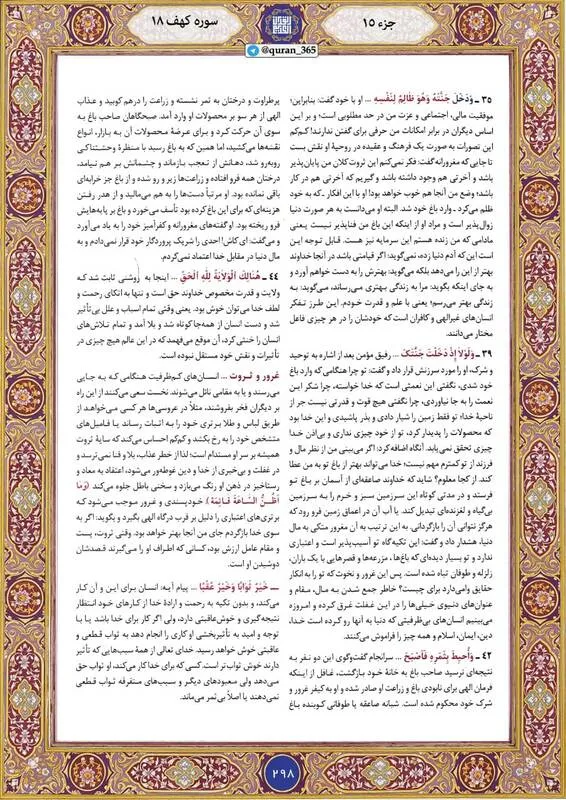 جزء ۱۵
@quran_365
سوره کهف ۱۸
۳۵ ـ وَدَخَلَ جَنَّتَهُ وَهُوَ ظَالِمٌ لِنَفْسِهِ ... او با خود گفت: بنابراین؛
موفقیت مالی، اجتماعی و عزت من در حد مطلوبی است؛ و بر این
اساس دیگران در برابر امکانات من حرفی برای گفتن ندارند! کم‌کم
این تصورات به صورت یک فرهنگ و عقیده در روحیهٔ او نقش بست
تا جایی که مغرورانه گفت: فکر نمی‌کنم این ثروت کلان من پایان‌پذیر
باشد و آخرتی هم وجود داشته باشد و گیریم که آخرتی هم در کار
باشد؛ وضع من آنجا هم خوب خواهد بود! او با این افکار ـ که به خود
ظلم می‌کرد ـ وارد باغ خود شد. البته او می‌دانست به هر صورت دنیا
زوال‌پذیر است و مراد او از اینکه این باغ من فناپذیر نیست یعنی
مادامی که من زنده هستم این سرمایه نیز هست. قابل توجه این
است که آدم دنیا زده، نمی‌گوید: اگر قیامتی باشد در آنجا خداوند
بهتر از این را می‌دهد بلکه می‌گوید: بهترش را به دست خواهم آورد و
به جای اینکه بگوید: مرا به زندگی بهتری می‌رساند، می‌گوید: به
زندگی بهتر می‌رسم؛ یعنی با علم و قدرت خودم. این طرز تفکر
انسان‌های غیرالهی و کافران است که خودشان را در هر چیزی فاعل
مختار می‌دانند.
۳۹ ـ وَلَوْلَا إِذْ دَخَلْتَ جَنَّتَكَ ... رفیق مؤمن بعد از اشاره به توحید
و شرک، او را مورد سرزنش قرار داد و گفت: تو چرا هنگامی که وارد باغ
خود شدی، نگفتی این نعمتی است که خدا خواسته، چرا شکر این
نعمت را به جا نیاوردی، چرا نگفتی هیچ قوت و قدرتی نیست جز از
ناحیهٔ خدا؛ تو فقط زمین را شیار دادی و بذر پاشیدی و این خدا بود
که محصولات را پدیدار کرد، تو از خود چیزی نداری و بی‌اذن خدا
چیزی تحقق نمی‌یابد. آنگاه اضافه کرد: اگر می‌بینی من از نظر مال و
فرزند از تو کمترم مهم نیست؛ خدا می‌تواند بهتر از باغ تو به من عطا
کند. از کجا معلوم؟ شاید که خداوند صاعقه‌ای از آسمان بر باغ تو
فرستد و در مدتی کوتاه این سرزمین سبز و خرم را به سرزمین
بی‌گیاه و لغزنده‌ای تبدیل کند. یا آب آن در اعماق زمین فرو رود که
هرگز نتوانی آن را بازگردانی. به این ترتیب به آن مغرور متکی به مال
دنیا، هشدار داد و گفت: این تکیه‌گاه تو آسیب‌پذیر است و اعتباری
ندارد و تو بسیار دیده‌ای که باغ‌ها، مزرعه‌ها و قصرهایی با یک باران،
زلزله و طوفان تباه شده است. پس این غرور و نخوت که تو را به انکار
حقایق وامی‌دارد برای چیست؟ خاطر جمع شدن به مال، مقام و
عنوان‌های دنیوی خیلی‌ها را در این غفلت غرق کرده و امروزه
می‌بینیم انسان‌های بی‌ظرفیتی که دنیا به آنها رو کرده است خدا،
دین، ایمان، اسلام و همه چیز را فراموش می‌کنند.
۴۲ ـ وَأُحِيطَ بِثَمَرِهِ فَأَصْبَحَ ... سرانجام گفت‌وگوی این دو نفر به
نتیجه‌ای نرسید صاحب باغ به خانهٔ خود بازگشت، غافل از اینکه
فرمان الهی برای نابودی باغ و زراعت او صادر شده و او به کیفر غرور و
شرک خود محکوم شده است. شبانه صاعقه یا طوفانی کوبنده باغ
پرطراوت و درختان به ثمر نشسته و زراعت را درهم کوبید و عذاب
الهی از هر سو بر محصولات او وارد آمد. صبحگاهان صاحب باغ به
سوی آن حرکت کرد و برای عرضهٔ محصولات آن به بازار، انواع
نقشه‌ها می‌کشید، اما همین که به باغ رسید با منظرهٔ وحشتناکی
روبه‌رو شد، دهانش از تعجب بازماند و چشمانش بر هم نیامد.
درختان همه فرو افتاده و زراعت‌ها زیر و رو شده و از باغ جز خرابه‌ای
باقی نمانده بود. او مرتباً دست‌ها را به هم می‌مالید و از هدر رفتن
هزینه‌ای که برای این باغ کرده بود تأسف می‌خورد و باغ بر پایه‌هایش
فرو ریخته بود. او گفته‌های مغرورانه و کفرآمیز خود را به یاد می‌آورد
و می‌گفت: ای کاش! احدی را شریک پروردگار خود قرار نمی‌دادم و به
مال دنیا در مقابل خدا اعتماد نمی‌کردم.
۴۴ ـ هُنَالِكَ الْوَلَايَةُ لِلَّهِ الْحَقِّ ... اینجا به روشنی ثابت شد که
ولایت و قدرت مخصوص خداوند حق است و تنها به اتکای رحمت و
لطف خدا می‌توان خوش بود. یعنی وقتی تمام اسباب و علل بی‌تأثیر
شد و دست انسان از همه‌جا کوتاه شد و بلا آمد و تمام تلاش‌های
انسان را خنثی کرد، آن موقع می‌فهمد که در این عالم هیچ چیزی در
تأثیرات و نقش خود مستقل نبوده است.
غرور و ثروت ... انسان‌های کم‌ظرفیت هنگامی که به جایی
می‌رسند و یا به مقامی نائل می‌شوند، نخست سعی می‌کنند از این راه
بر دیگران فخر بفروشند، مثلاً در عروسی‌ها هر کسی می‌خواهد از
طریق لباس و طلا برتری خود را به اثبات رساند یا فامیل‌های
متشخص خود را به رخ بکشد و کم‌کم احساس می‌کند که سایهٔ ثروت
همیشه بر سر او مستدام است؛ لذا از خطر عذاب، بلا و فنا نمی‌ترسد و
در غفلت و بی‌خبری از خدا و دین غوطه‌ور می‌شود، اعتقاد به معاد و
رستاخیز در ذهن او رنگ می‌بازد و سخنی باطل جلوه می‌کند (وَمَا
أَظُنُّ السَّاعَةَ قَائِمَةً). خودپسندی و غرور موجب می‌شود که
برتری‌های اعتباری را دلیل بر قرب درگاه الهی بگیرد و بگوید: اگر به
سوی خدا بازگردم جای من آنجا بهتر خواهد بود. وقتی ثروت، پست
و مقام عامل ارزش بود، کسانی که اطراف او را می‌گیرند قصدشان
دوشیدن او است.
ـــ خَيْرٌ ثَوَابًا وَخَيْرٌ عُقْبًا ... پیام آیه: انسان برای این و آن کار
می‌کند، و بدون تکیه به رحمت و ارادهٔ خدا از کارهای خود انتظار
نتیجه‌گیری و خوش‌عاقبتی دارد، ولی اگر کار برای خدا باشد یا با
توجه و امید به تأثیربخشی او کاری را انجام دهد به ثواب قطعی و
عاقبتی خوش خواهد رسید. خدای تعالی از همهٔ سبب‌هایی که تأثیر
دارند خوش ثواب‌تر است. کسی که برای خدا کار می‌کند، او ثواب حق
می‌دهد ولی معبودهای دیگر و سبب‌های متفرقه ثواب قطعی
نمی‌دهند یا اصلاً بی‌ثمر می‌ماند.
۲۹۸